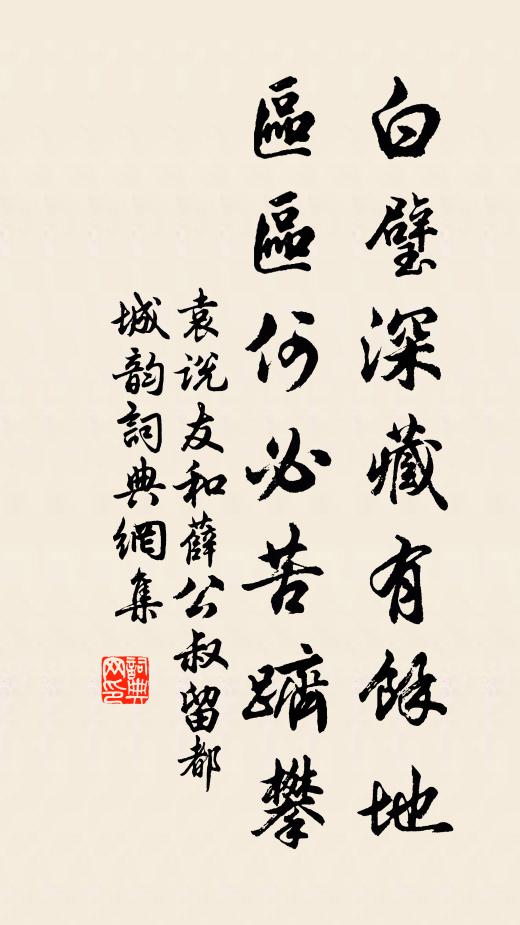 白璧深藏有餘地
區區何必苦躋攀
袁说友和薛公叔留都
城韵詞典網集
詞典网印